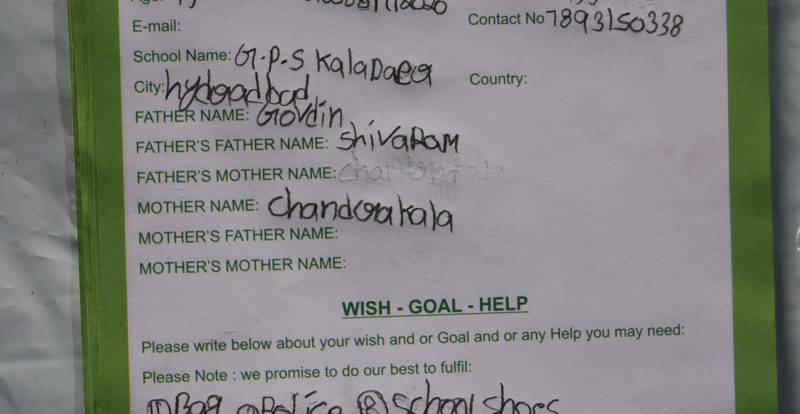 Contact No 7893150338
E-mail:
School Name: G.P.S Kaladaera
City: hydraadbad Country:
FATHER NAME: Govdin
FATHER'S FATHER NAME: ShivaRaM
FATHER'S MOTHER NAME:
MOTHER NAME: Chandrakala
MOTHER'S FATHER NAME:
MOTHER'S MOTHER NAME:
WISH - GOAL - HELP
Please write below about your wish and or Goal and or any Help you may need:
Please Note : we promise to do our best to fulfil:
① Bag ② Police ③ School shoes